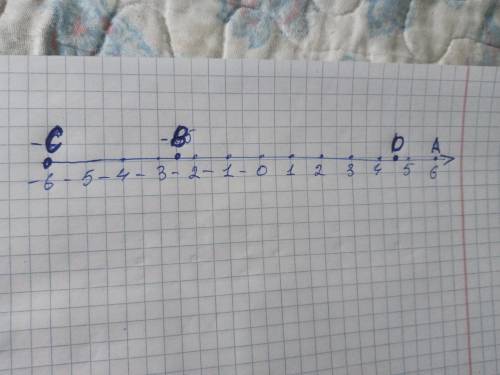 C B D A
-6 -5 -4 -3 -2 -1 -0 1 2 3 4 5 6